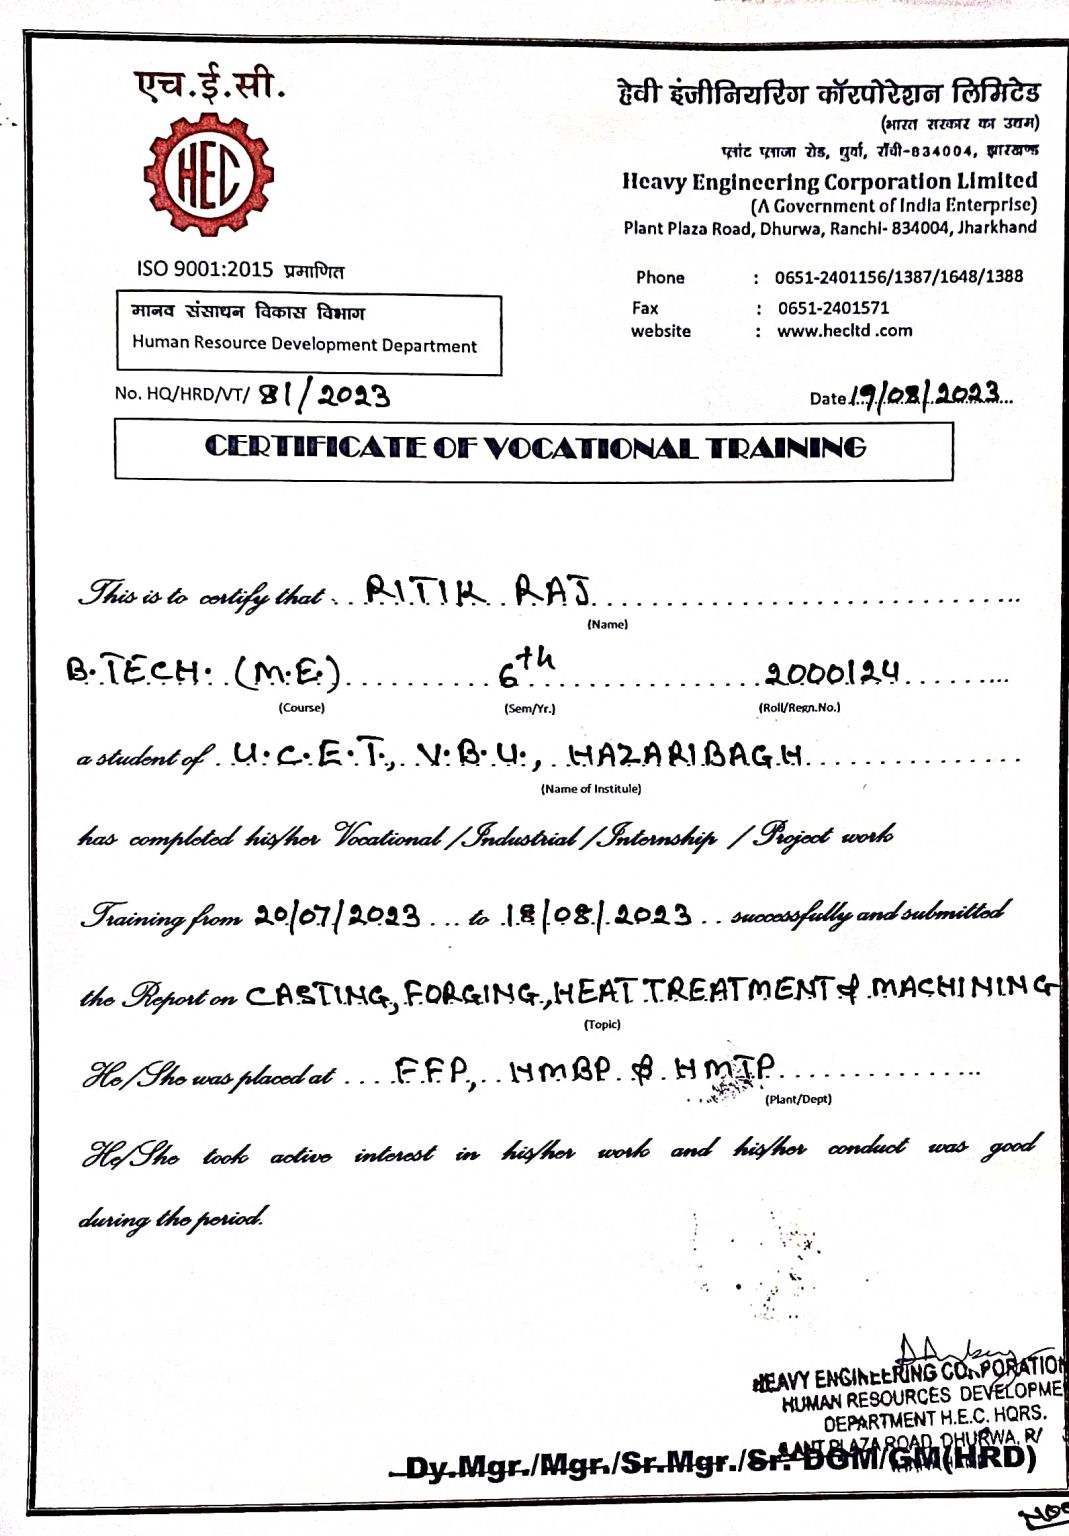 एच.ई.सी.
HEC
ISO 9001:2015 प्रमाणित
मानव संसाधन विकास विभाग
Human Resource Development Department
No. HQ/HRD/VT/ 81/2023
हेवी इंजीनियरिंग कॉरपोरेशन लिमिटेड
(भारत सरकार का उद्यम)
प्लांट प्लाजा रोड, धुर्वा, राँची-834004, झारखण्ड
Heavy Engineering Corporation Limited
(A Government of India Enterprise)
Plant Plaza Road, Dhurwa, Ranchi- 834004, Jharkhand
Phone : 0651-2401156/1387/1648/1388
Fax : 0651-2401571
website : www.hecltd .com
Date 19/08/2023
CERTIFICATE OF VOCATIONAL TRAINING
This is to certify that RITIK RAJ
(Name)
B.TECH. (M.E.) 6th 2000124
(Course) (Sem/Yr.) (Roll/Regn.No.)
a student of U.C.E.T., V.B.U., HAZARIBAGH
(Name of Institule)
has completed his/her Vocational /Industrial /Internship / Project work
Training from 20/07/2023 to 18/08/2023 successfully and submitted
the Report on CASTING, FORGING, HEAT TREATMENT & MACHINING
(Topic)
He/She was placed at FFP, HMBP & HMTP
(Plant/Dept)
He/She took active interest in his/her work and his/her conduct was good
during the period.
HEAVY ENGINEERING CORPORATION
HUMAN RESOURCES DEVELOPME
DEPARTMENT H.E.C. HQRS.
PLAZA ROAD, DHURWA, R
Dy.Mgr./Mgr./Sr.Mgr./Sr. DGM/GM(HRD)